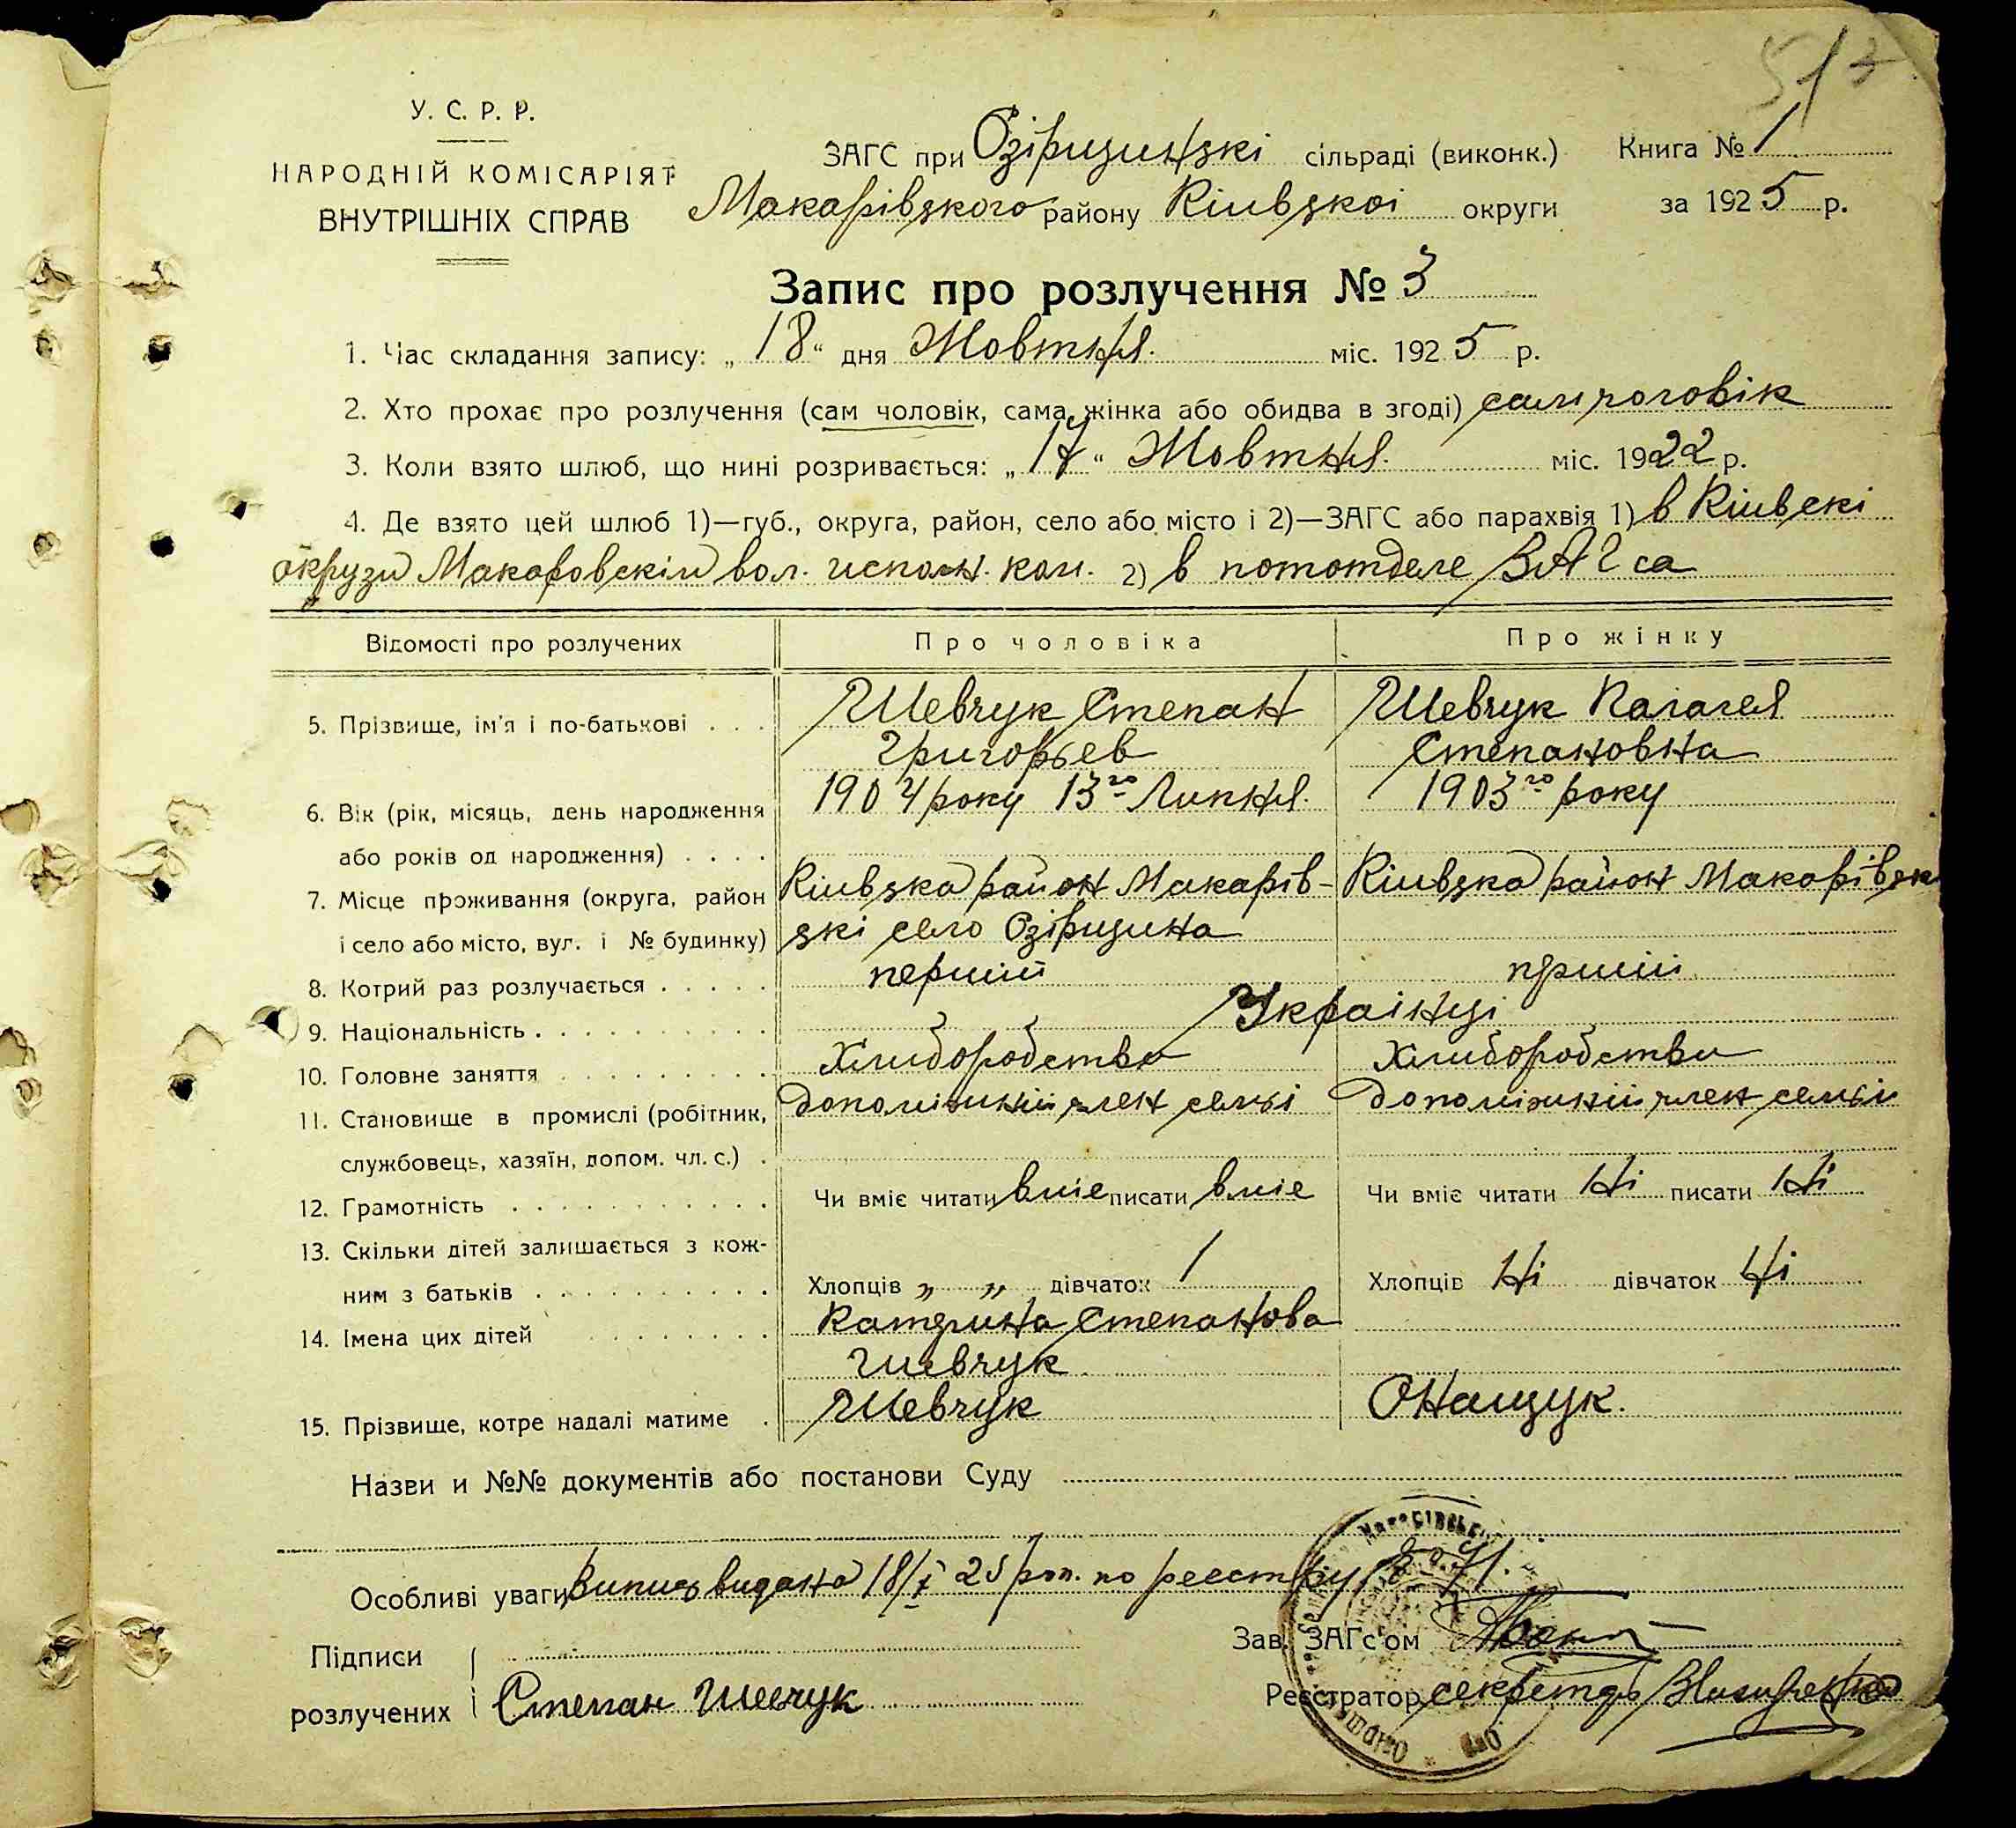 У. С. Р. Р.
НАРОДНІЙ КОМІСАРІЯТ
ВНУТРІШНІХ СПРАВ
ЗАГС при Озірщинскі сільраді (виконк.) Книга № 1
Макарівского району Кіивскоі округи за 1925 р.
Запис про розлучення № 3
1. Час складання запису: „18“ дня Жовтня міс. 1925 р.
2. Хто прохає про розлучення (сам чоловік, сама жінка або обидва в згоді) сам чоловік
3. Коли взято шлюб, що нині розривається: „ “ Жовтня міс. 1922 р.
4. Де взято цей шлюб 1)—губ., округа, район, село або місто і 2)—ЗАГС або парахвія 1) в Кіивскі
окрузи Макаровскім вол. исполн. ком. 2) в пототделе ЗАГса
Відомості про розлучених Про чоловіка Про жінку
5. Прізвище, ім'я і по-батькові Шевчук Степан Шевчук Палагея
Григорьев Степановна
6. Вік (рік, місяць, день народження 1904 року 13го Липня 1903го року
або років од народження)
7. Місце проживання (округа, район Кіивска район Макарів- Кіивска район Макарівск
і село або місто, вул. і № будинку) скі село Озірщина
8. Котрий раз розлучається перший прший
9. Національність Украінці
10. Головне заняття Хлиборобство Хлиборобство
11. Становище в промислі (робітник, Допоміжний член семьі Допоміжний член семьи
службовець, хазяїн, допом. чл. с.)
12. Грамотність Чи вміє читати вміе писати вміе Чи вміє читати Ні писати Ні
13. Скільки дітей залишається з кож-
ним з батьків Хлопців „ „ дівчаток 1 Хлопців Ні дівчаток Ні
14. Імена цих дітей Катерина Степанова
Шевчук
15. Прізвище, котре надалі матиме Шевчук Онащук.
Назви и №№ документів або постанови Суду
Особливі уваги Випись видана 18/X 25 рок. по реестру
Підписи Зав. ЗАГс'ом
розлучених Степан Шевчук Реєстратор секретарь